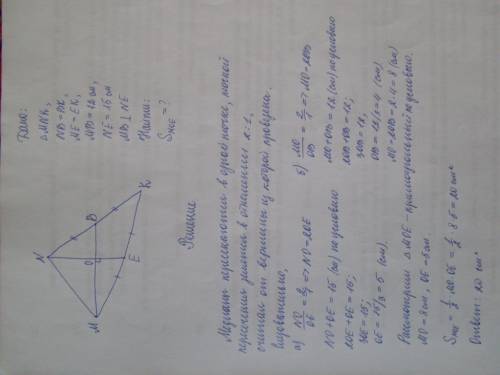 Дано:
△MNK,
NB=BK,
ME=EK,
MB=12 см,
NE=15 см
MB⊥NE
Найти:
S△MOE=?
N
B
K
O
M
E
Решение
Медианы пересекаются в одной точке, точкой
пересечения делятся в отношении 2:1,
считая от вершины из которой проведена.
Следовательно,
а) NO/OE = 2/1 => NO=2OE
NO+OE=15 (см) по условию
2OE+OE=15;
3OE=15;
OE=15/3=5 (см)
б) MO/OB = 2/1 => MO=2OB
MO+OB=12 (см) по условию
2OB+OB=12;
3OB=12;
OB=12/3=4 (см)
MO=2OB=2·4=8 (см)
Рассмотрим △MOE-прямоугольный по условию.
MO=8 см, OE=5 см.
S△MOE=½·MO·OE=½·8·5=20 см²
Ответ: 20 см²